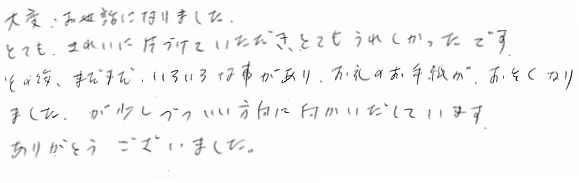 大変、お世話になりました.
とても、きれいに片づけていただき、とてもうれしかったです.
その後、まだまだ、いろいろな事があり、お礼のお手紙が、おそくなり
ました. が少しづついい方向に向かいだしています.
ありがとう ございました。